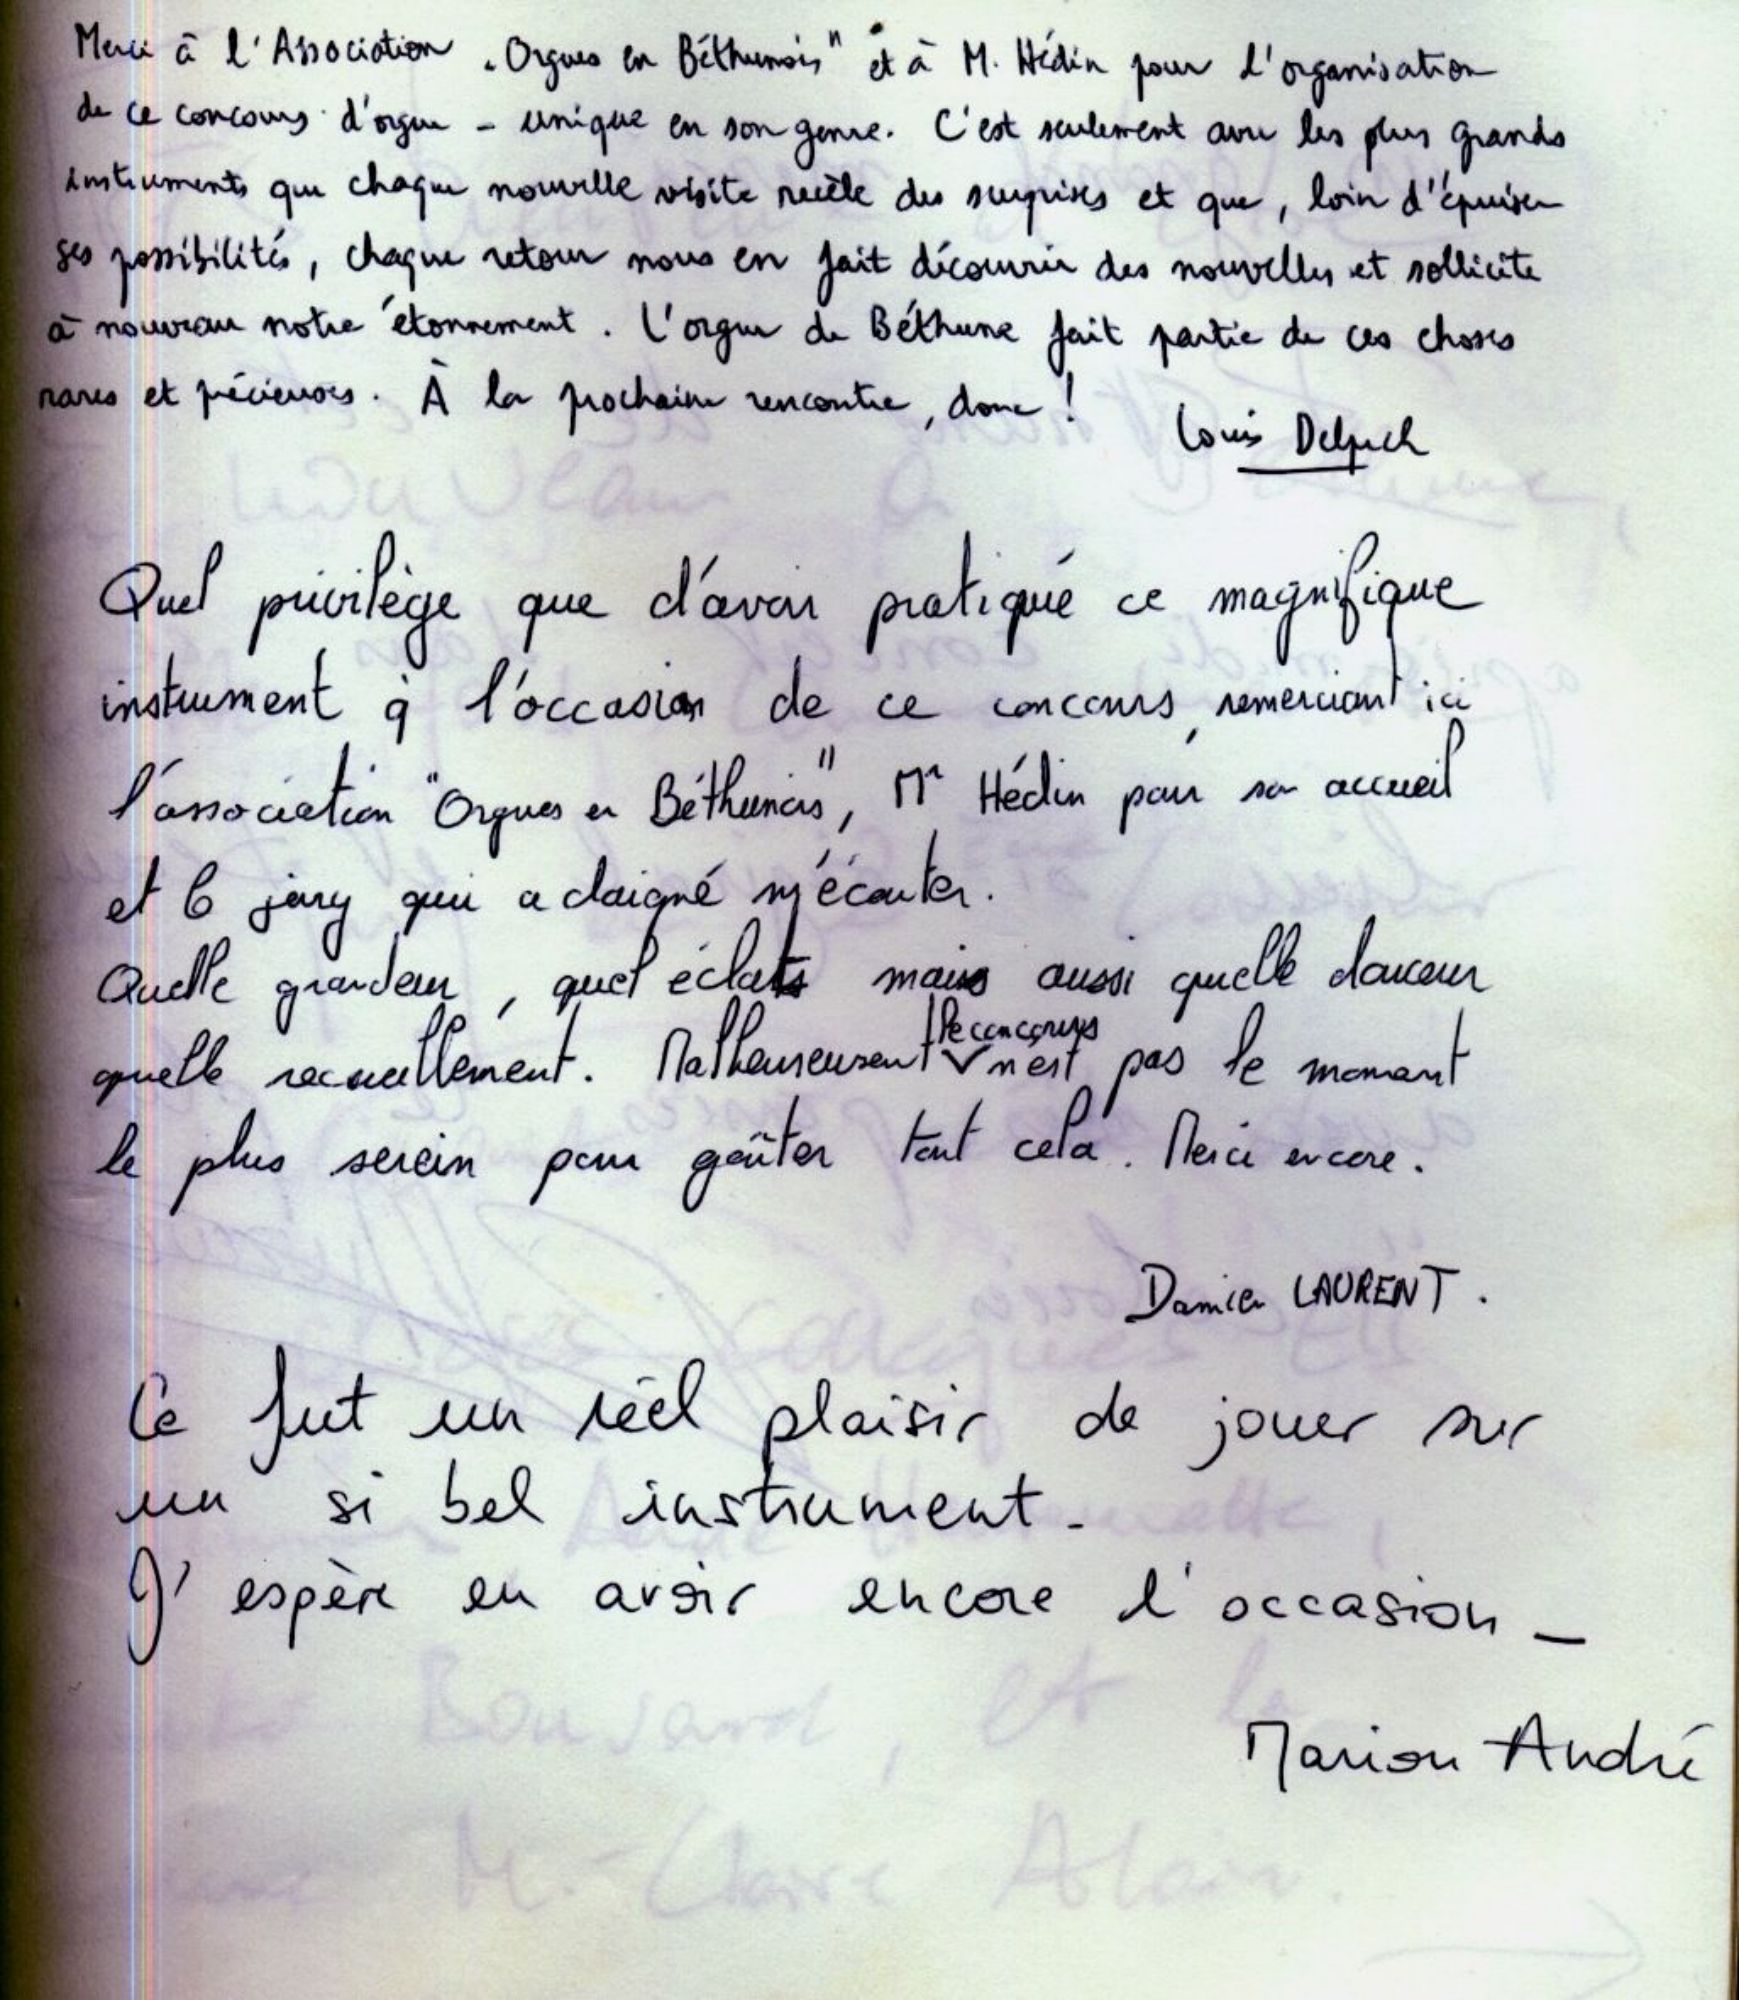 Merci à l'Association „Orgues en Béthunois" et à M. Hédin pour l'organisation
de ce concours d'orgue - unique en son genre. C'est seulement avec les plus grands
instruments que chaque nouvelle visite recèle des surprises et que, loin d'épuiser
ses possibilités, chaque retour nous en fait découvrir des nouvelles et sollicite
à nouveau notre étonnement. L'orgue de Béthune fait partie de ces choses
rares et précieuses. À la prochaine rencontre, donc !
Louis Delpech
Quel privilège que d'avoir pratiqué ce magnifique
instrument à l'occasion de ce concours, remerciant ici
l'association "Orgues en Béthunois", Mr Hédin pour son accueil
et le jury qui a daigné m'écouter.
Quelle grandeur, quel éclats mais aussi quelle douceur
le concours
quelle recueillement. Malheureusent n'est pas le moment
le plus serein pour goûter tout cela. Merci encore.
Damien LAURENT.
Ce fut un réel plaisir de jouer sur
un si bel instrument.
J'espère en avoir encore l'occasion_
Marion André
Bouvard, et le
M.-Claire Alain.